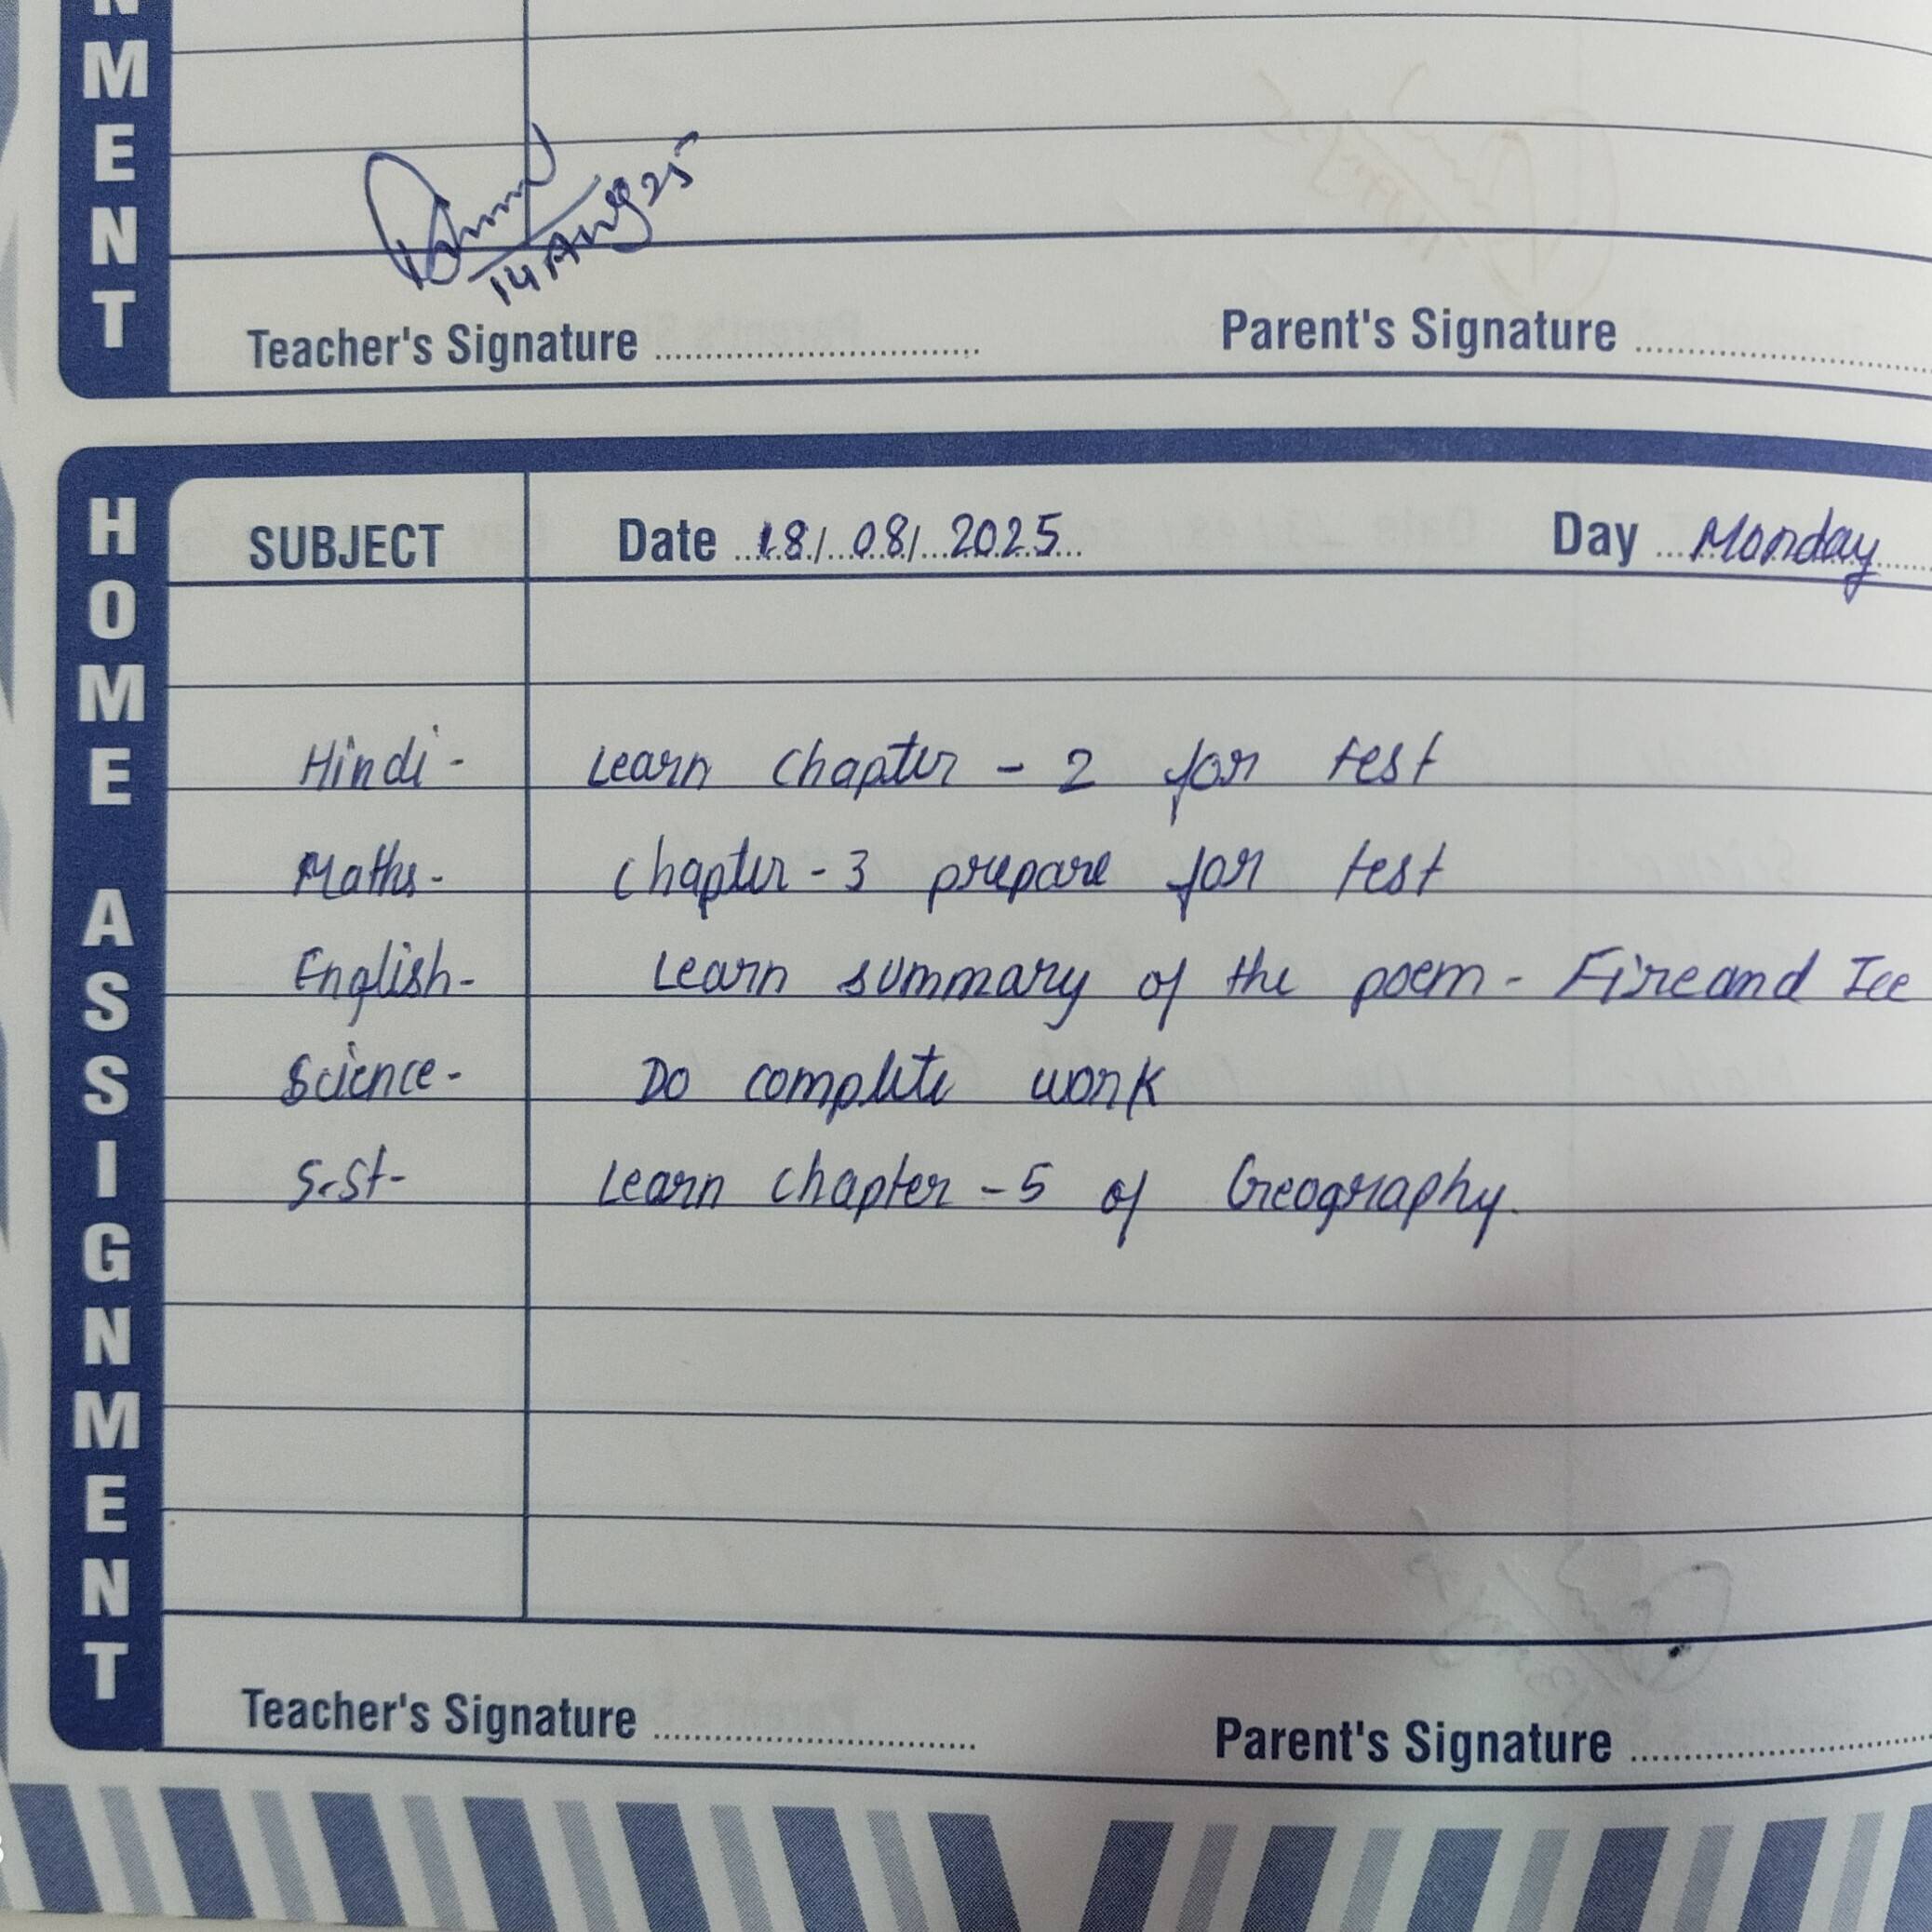 NMENT
14 Aug 25
Teacher's Signature ..............................
Parent's Signature ..............................
HOME ASSIGNMENT
SUBJECT
Date 18/ 08/ 2025
Day Monday
Hindi - Learn chapter - 2 for test
Maths - chapter - 3 prepare for test
English - Learn summary of the poem - Fire and Ice
Science - Do complete work
S.St - Learn chapter - 5 of Geography.
Teacher's Signature ..............................
Parent's Signature ..............................